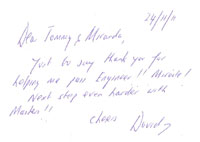 24/11/11
Dear Tommy & Miranda,
Just to say thank you for
helping me pass Engineer!! Miracle!
Next step even harder with
Master!!
cheers